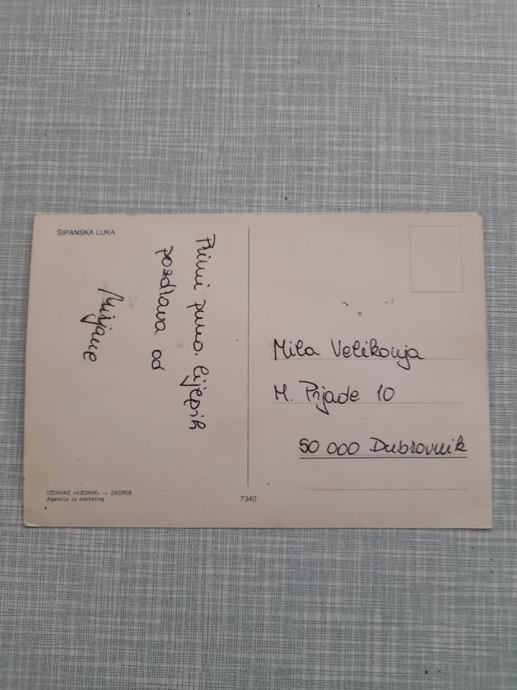 ŠIPANSKA LUKA
Primi puno lijepih
pozdrava od
Mirjane
Mila Velikonja
M. Pijade 10
50 000 Dubrovnik
IZDAVAČ »VJESNIK« — ZAGREB
Agencija za marketing
7340